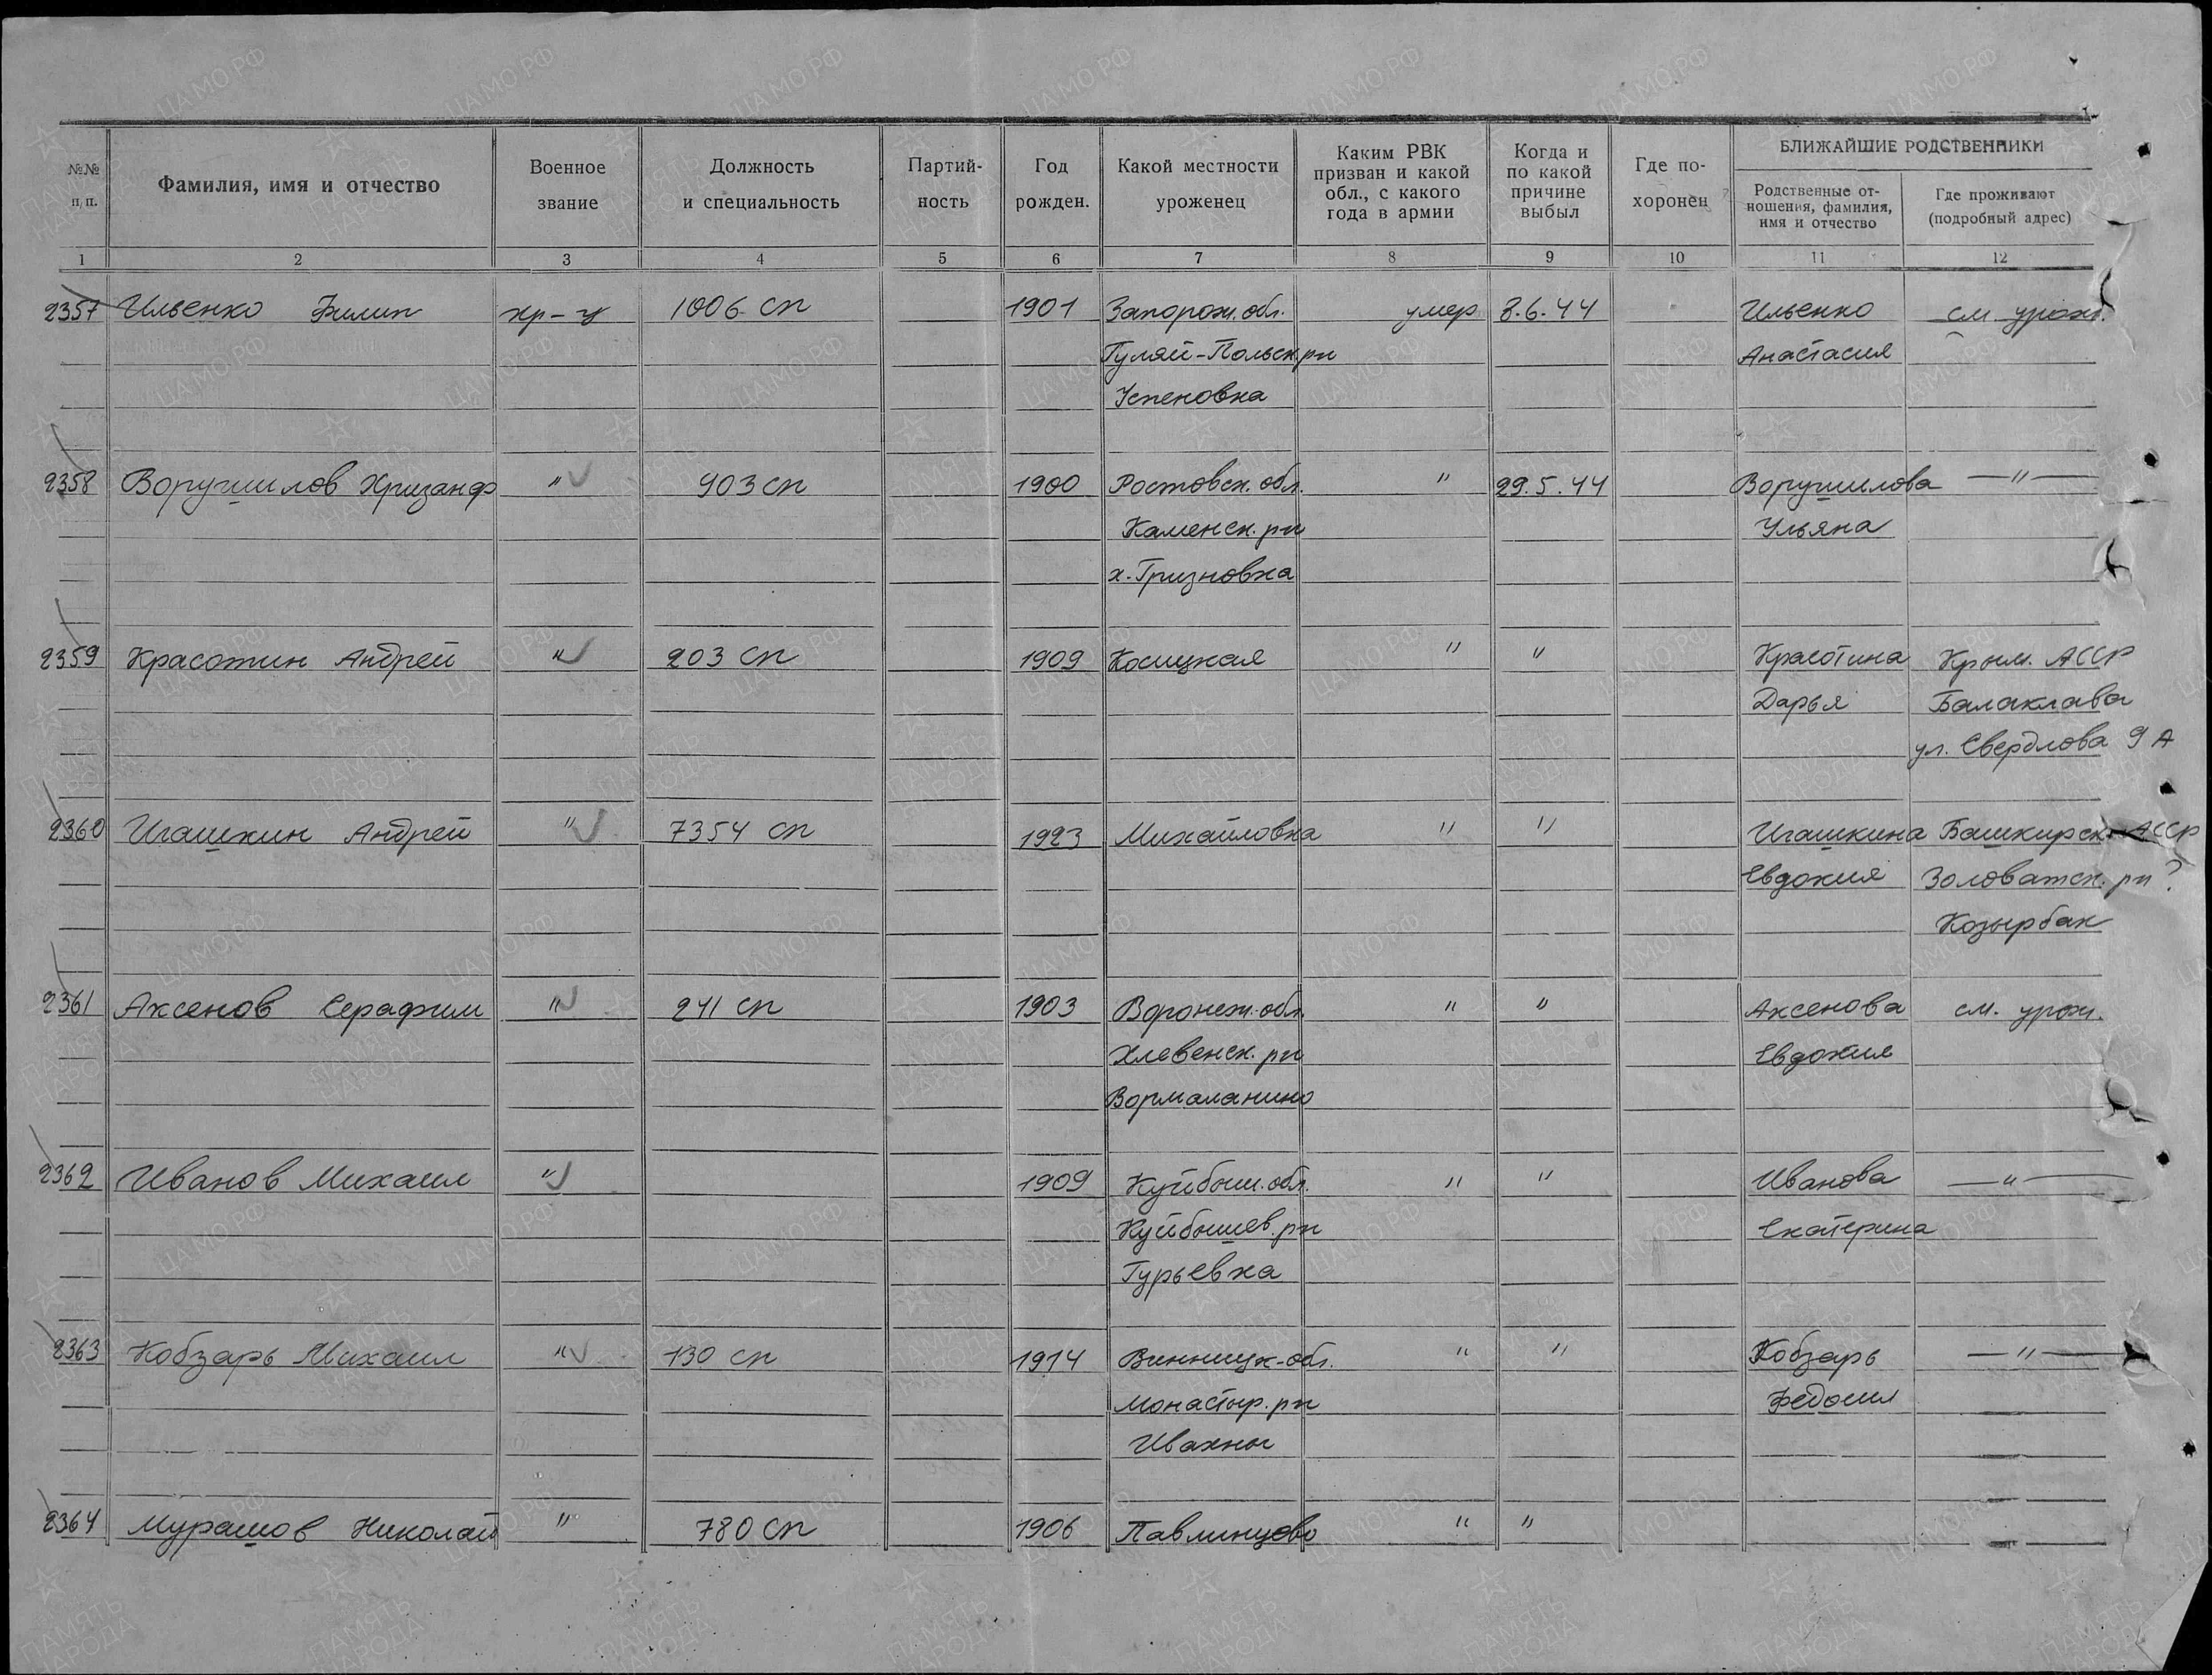 №№ п/п.
Фамилия, имя и отчество
Военное звание
Должность и специальность
Партийность
Год рожден.
Какой местности уроженец
Каким РВК призван и какой обл., с какого года в армии
Когда и по какой причине выбыл
Где похоронен
БЛИЖАЙШИЕ РОДСТВЕННИКИ
Родственные отношения, фамилия, имя и отчество
Где проживают (подробный адрес)
1 2 3 4 5 6 7 8 9 10 11 12
2357 Ильенко Филип кр-ц 1006 сп 1901 Запорож. обл. умер 8.6.44 Ильенко см. урож.
Гуляй-Польск. рн Анастасия
Успеновка
2358 Воручшилов Хризанф " 903 сп 1900 Ростовск. обл. " 29.5.44 Воручшилова —"—
Каменск. рн Ульяна
х. Гризновка
2359 Красотин Андрей " 203 сп 1909 Косицкая " " Красотина Крым. АССР
Дарья Балаклава
ул. Свердлова 9 А
2360 Игашкин Андрей " 7354 сп 1923 Михайловка " " Игашкина Башкирск. АССР
Евдокия Золоватск. рн ?
Козырбак
2361 Аксенов Серафим " 241 сп 1903 Воронеж. обл. " " Аксенова см. урож.
Хлевенск. рн Евдокия
Вормаланино
2362 Иванов Михаил " 1909 Куйбыш. обл. " " Иванова —"—
Куйбышев. рн Екатерина
Гурьевка
2363 Кобзарь Михаил " 130 сп 1914 Винницк. обл. " " Кобзарь —"—
Монастыр. рн Федосия
Ивахны
2364 Мурашов Николай " 780 сп 1906 Павлинцово " "